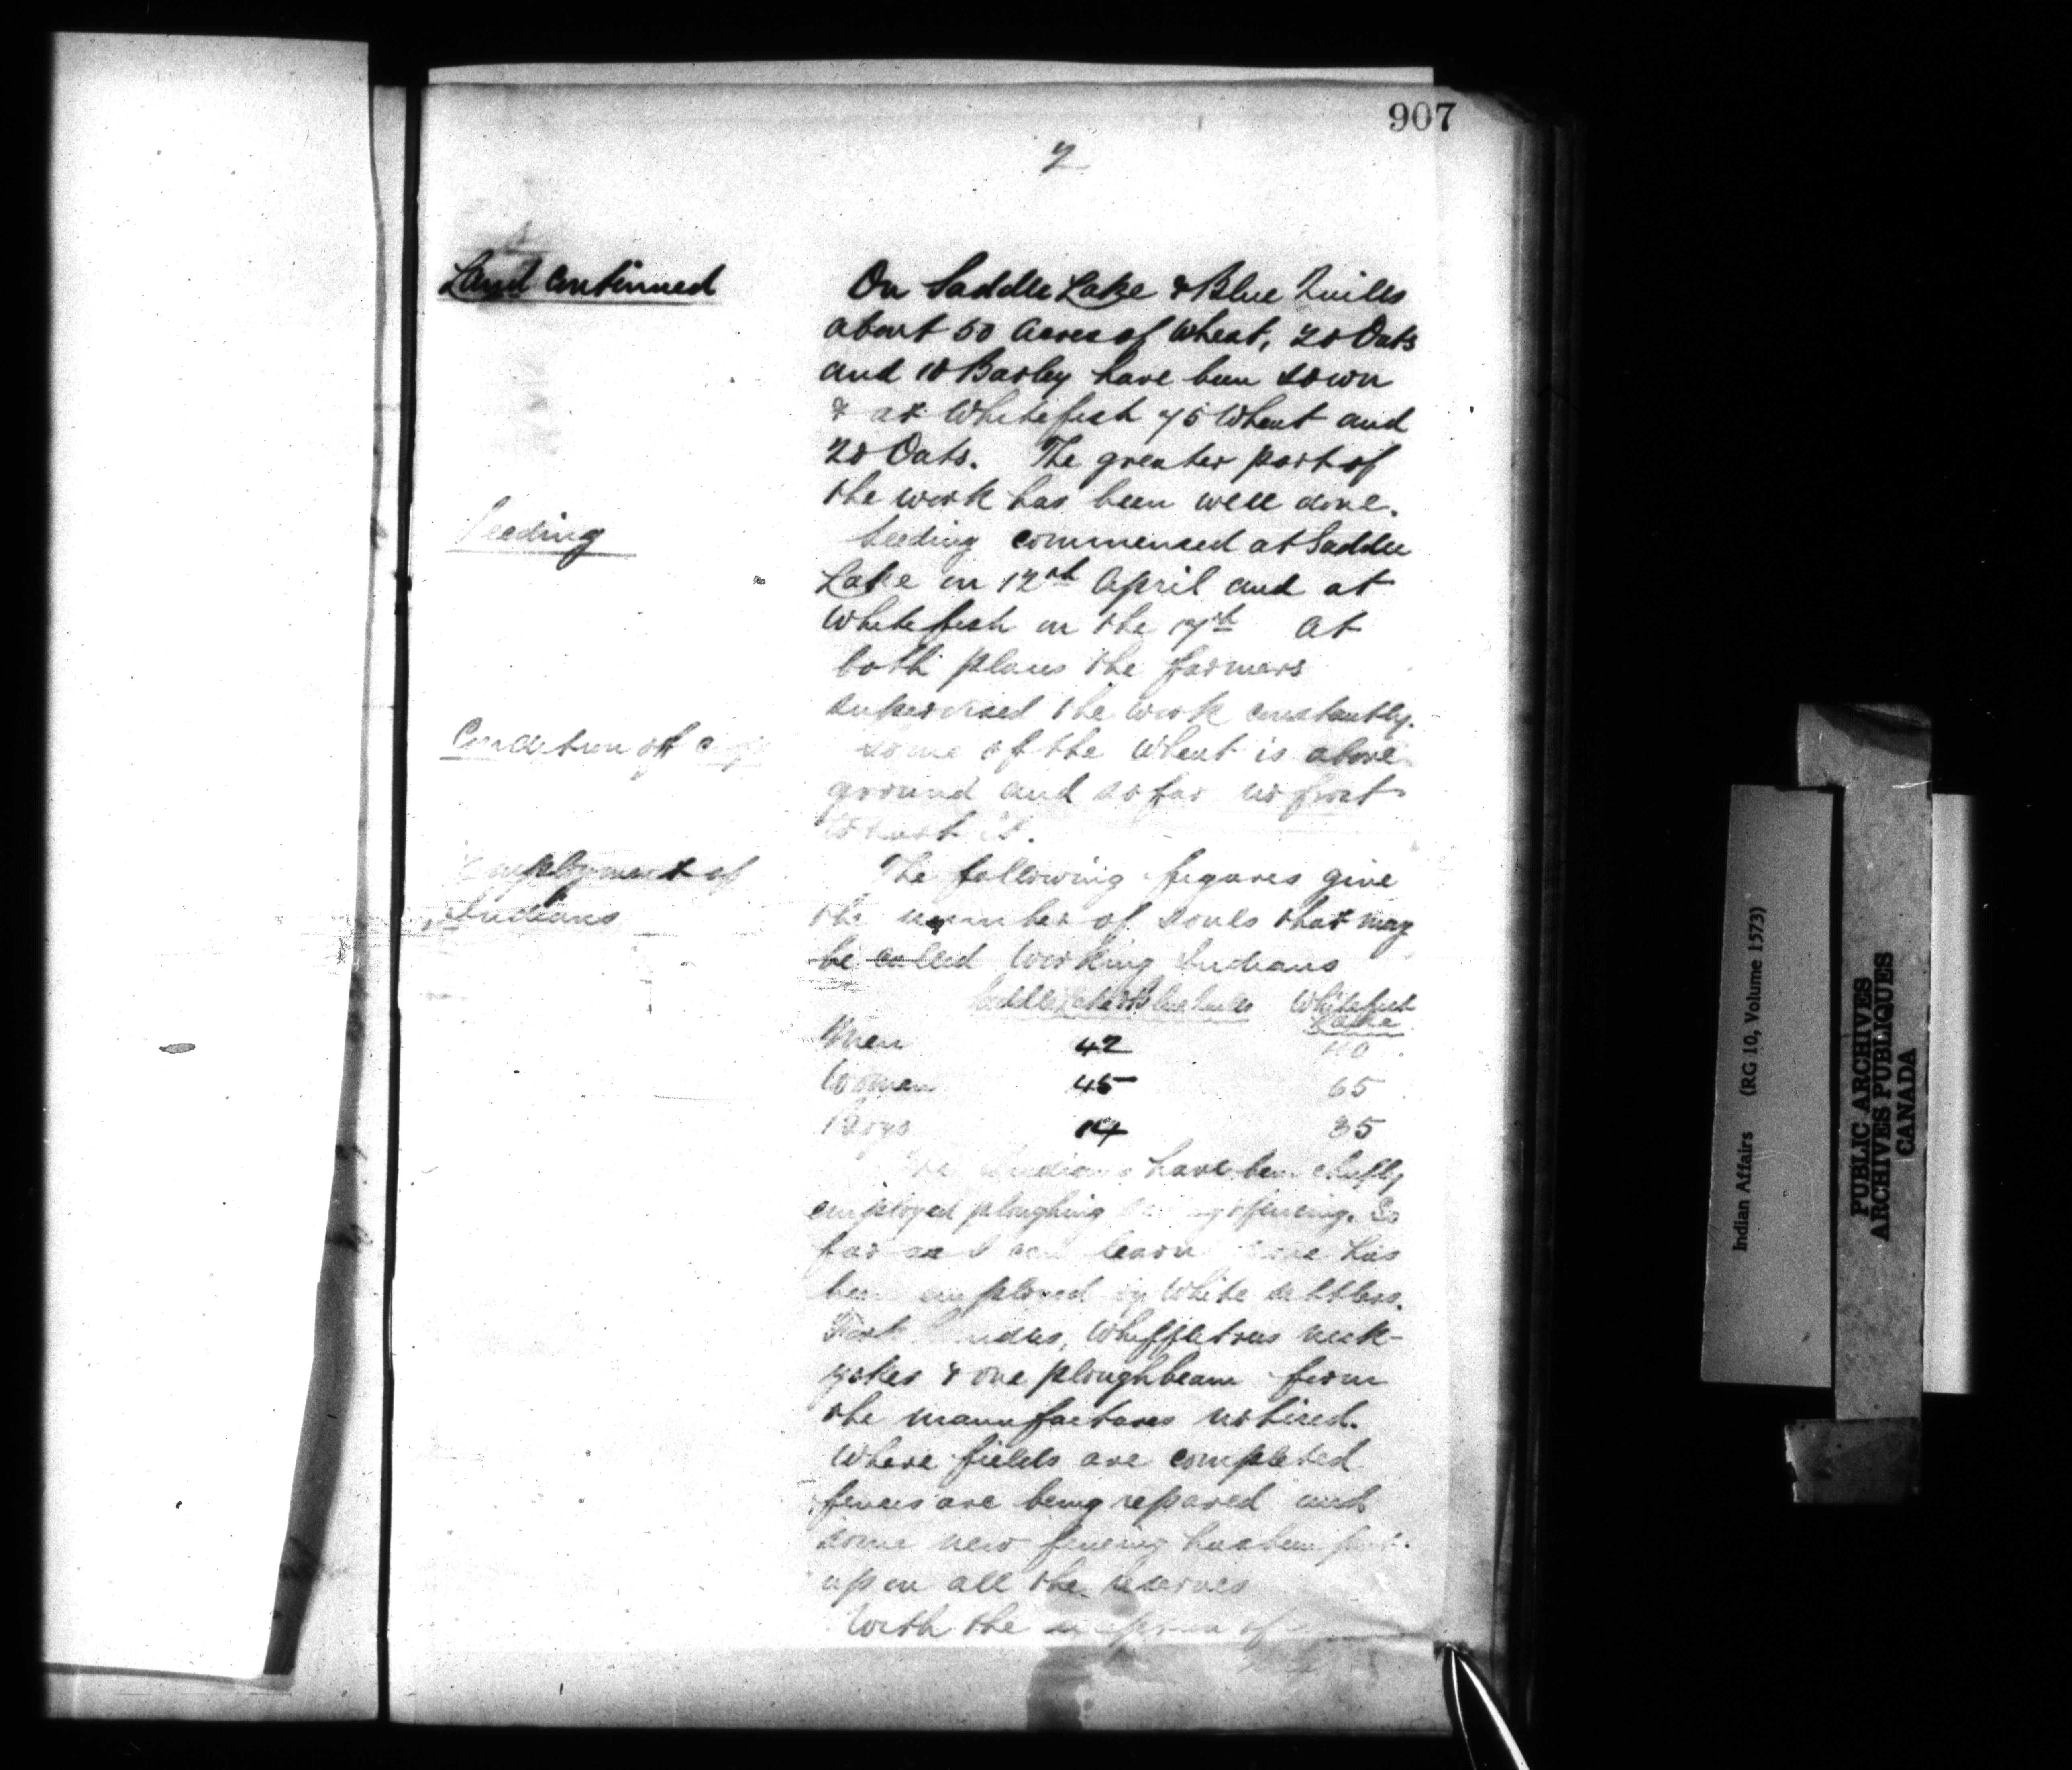 907
2
Land continued
On Saddle Lake & Blue Quills
about 50 Acres of Wheat, 20 Oats
and 10 Barley have been sown
& at Whitefish 75 Wheat and
20 Oats. The greater part of
the work has been well done.
Seeding
Seeding commenced at Saddle
Lake on 12th April and at
Whitefish on the 17th At
both places the farmers
supervised the work constantly.
Condition of
Some of the Wheat is above
ground and so far no frost
it.
Employment of
Indians
The following figures give
the number of souls that may
be called Working Indians
Saddle Lake & Blue Quills Whitefish
Lake
Men 42
Women 45 65
Boys 14 35
The Indians have been chiefly
employed ploughing & fencing. So
far as I can learn none has
been employed by White settlers.
Whiffletrees neck-
yokes & one ploughbeam form
the manufactures noticed.
Where fields are completed
fences are being repaired and
some new fencing has been put
up on all the reserves
With the of
Indian Affairs (RG 10, Volume 1573)
PUBLIC ARCHIVES
ARCHIVES PUBLIQUES
CANADA